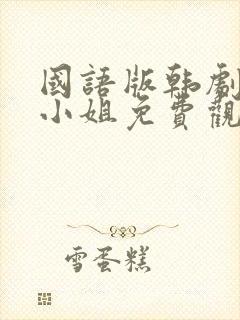 國語版韩劇
小姐免費觀
雪蛋糕